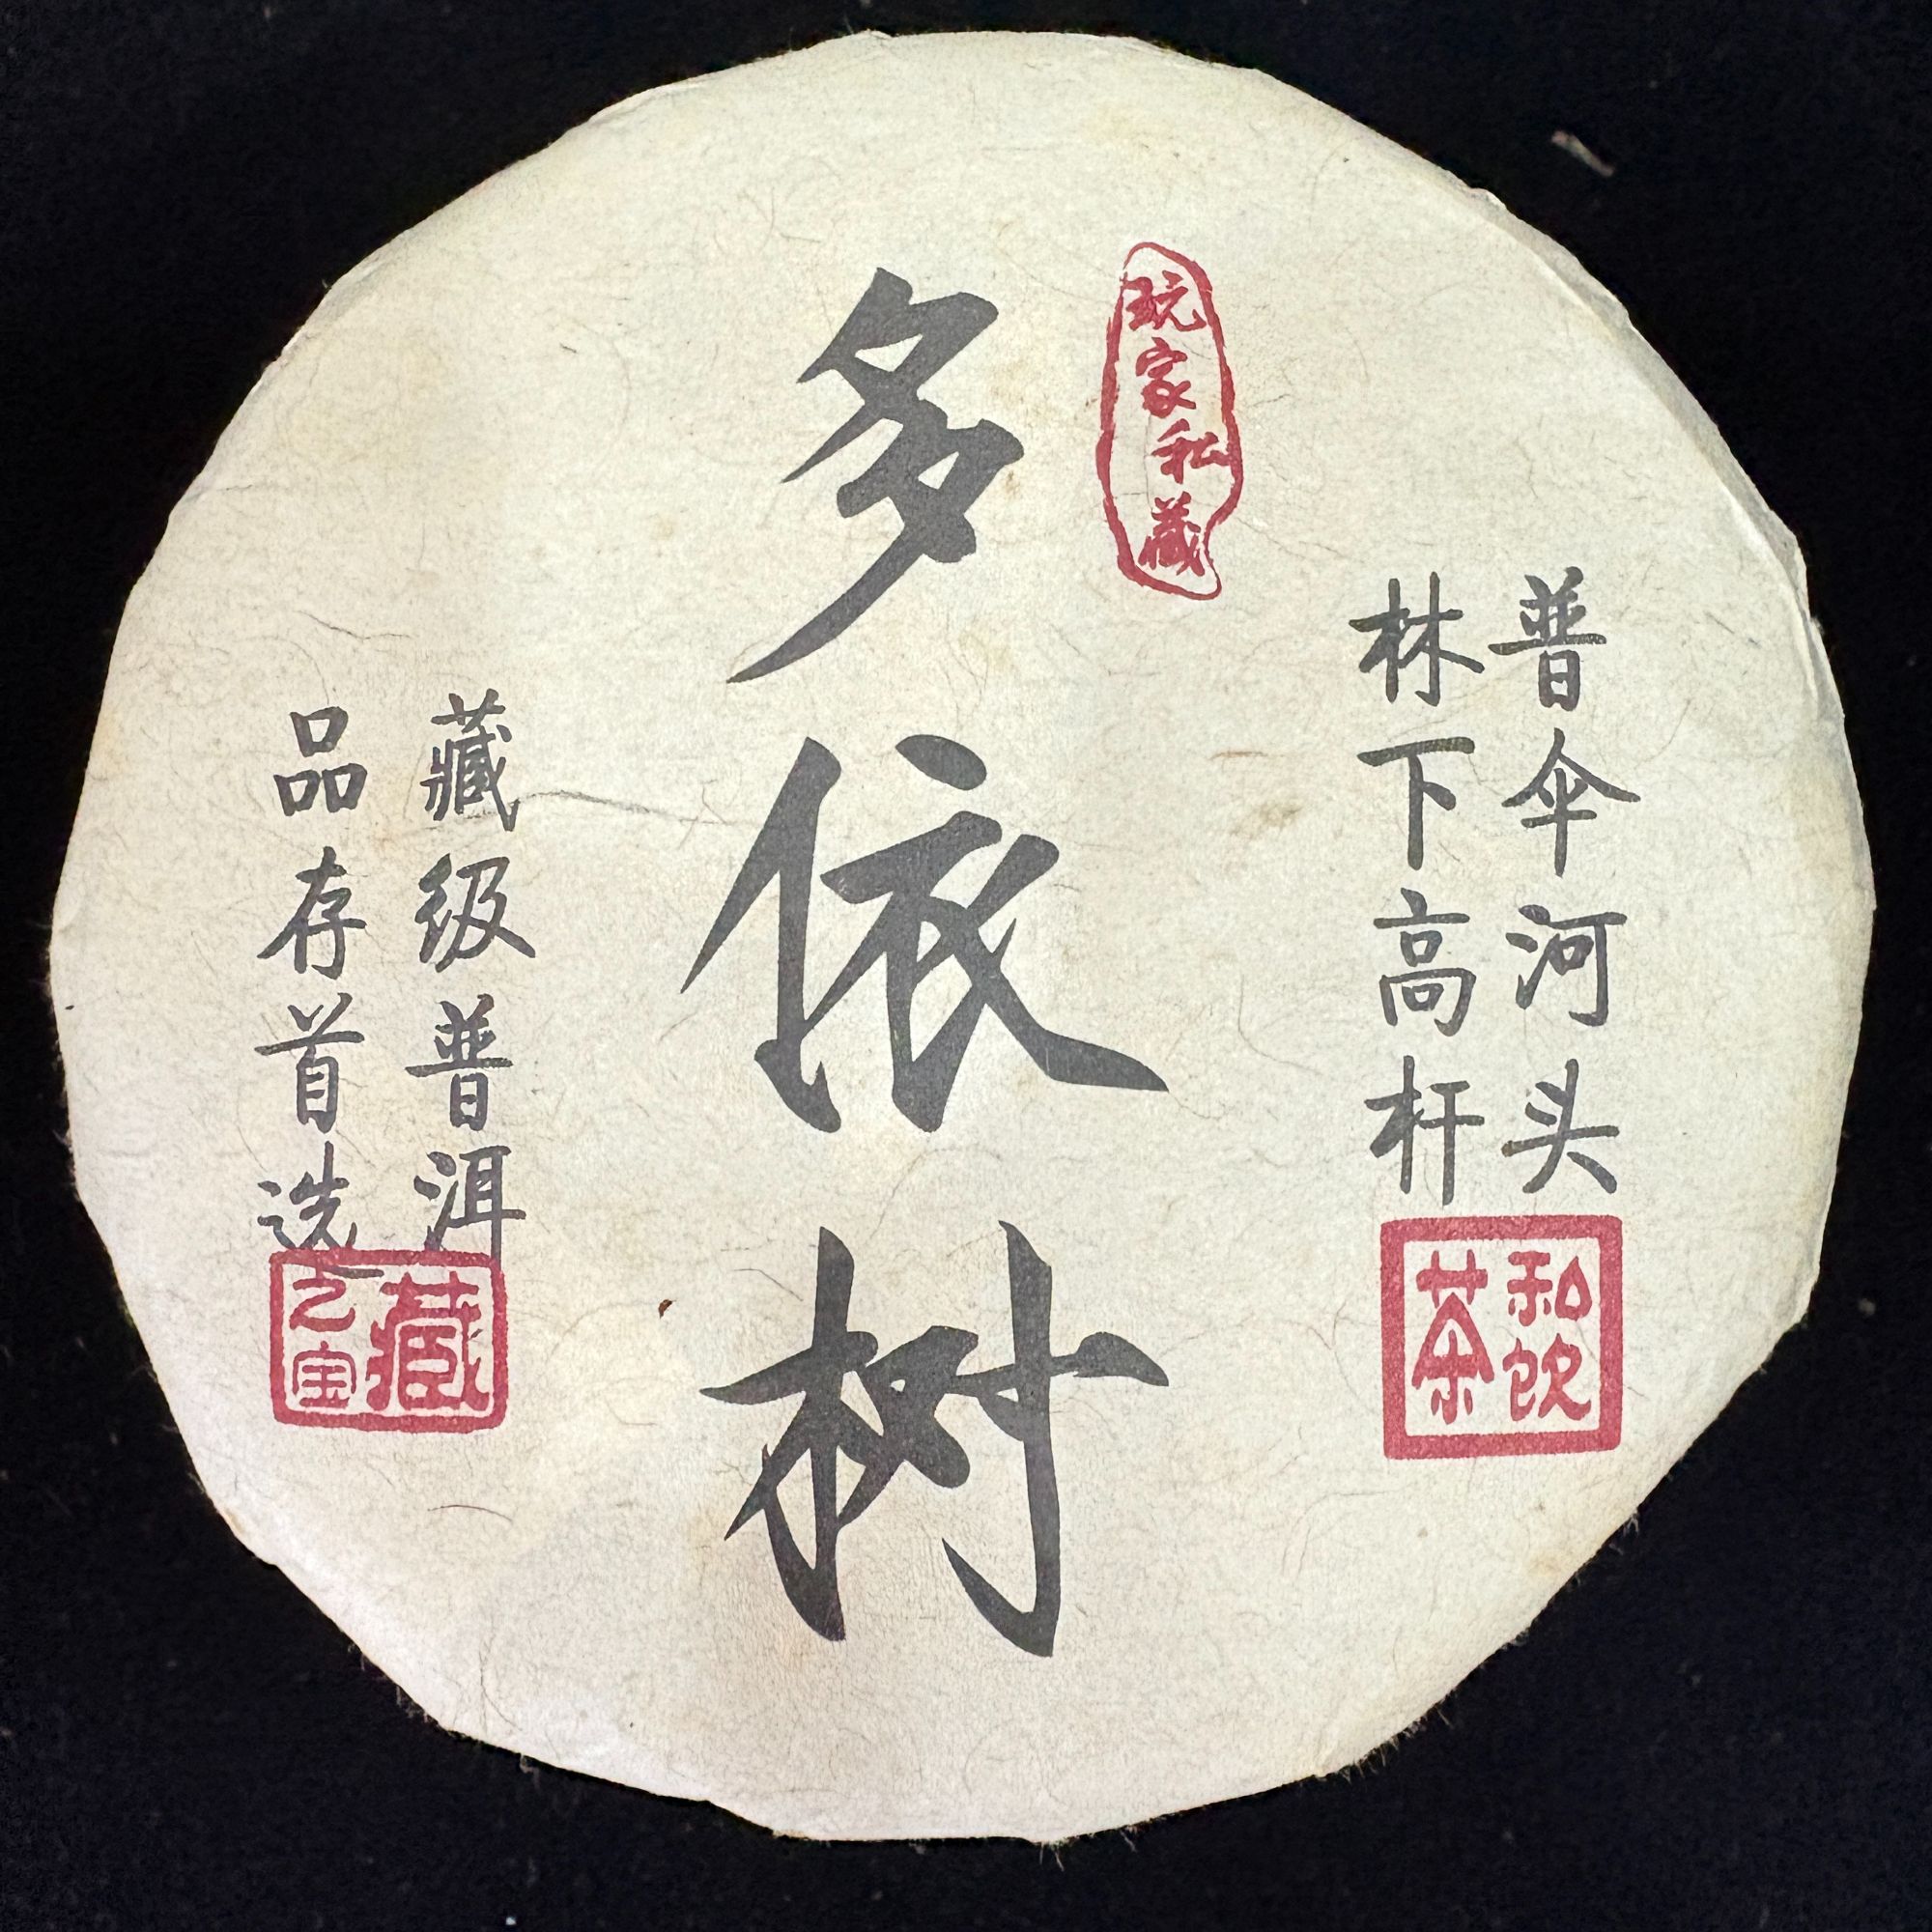 普伞河头
林下高杆
私饮
茶
玩家私藏
多依树
藏级普洱
品存首选
藏
之宝